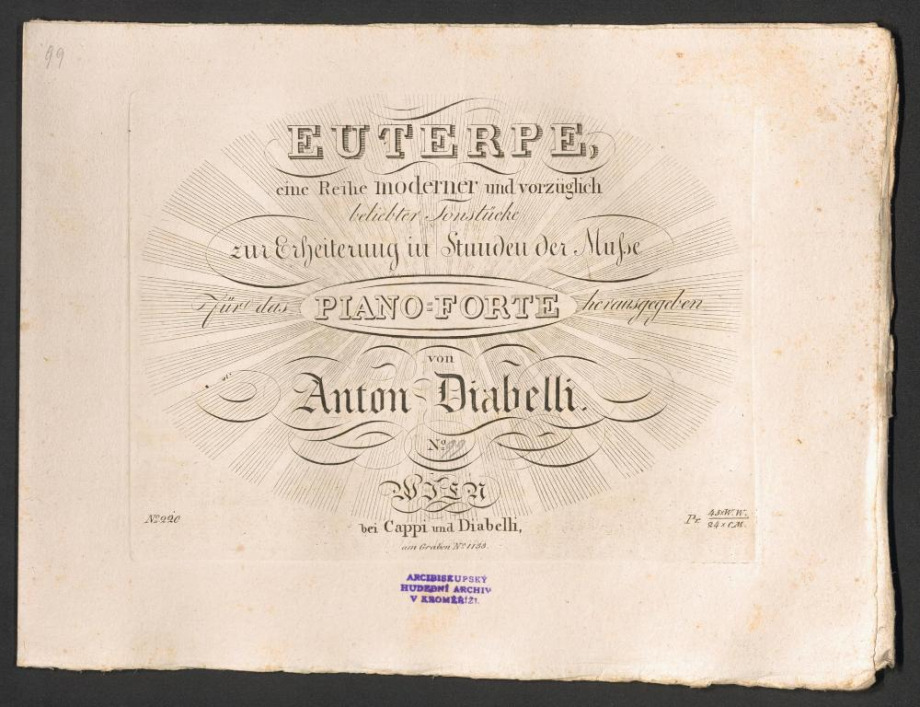 99
EUTERPE,
eine Reihe moderner und vorzüglich
beliebter Tonstücke
zur Erheiterung in Stunden der Muſse
Für das PIANO=FORTE herausgegeben
von
Anton Diabelli.
No. 99
WIEN
bei Cappi und Diabelli,
am Graben No. 1133.
No. 220
Pr. 45x W.W.
24x C.M.
ARCIBISKUPSKÝ
HUDEBNÍ ARCHIV
V KROMĚŘÍŽI.